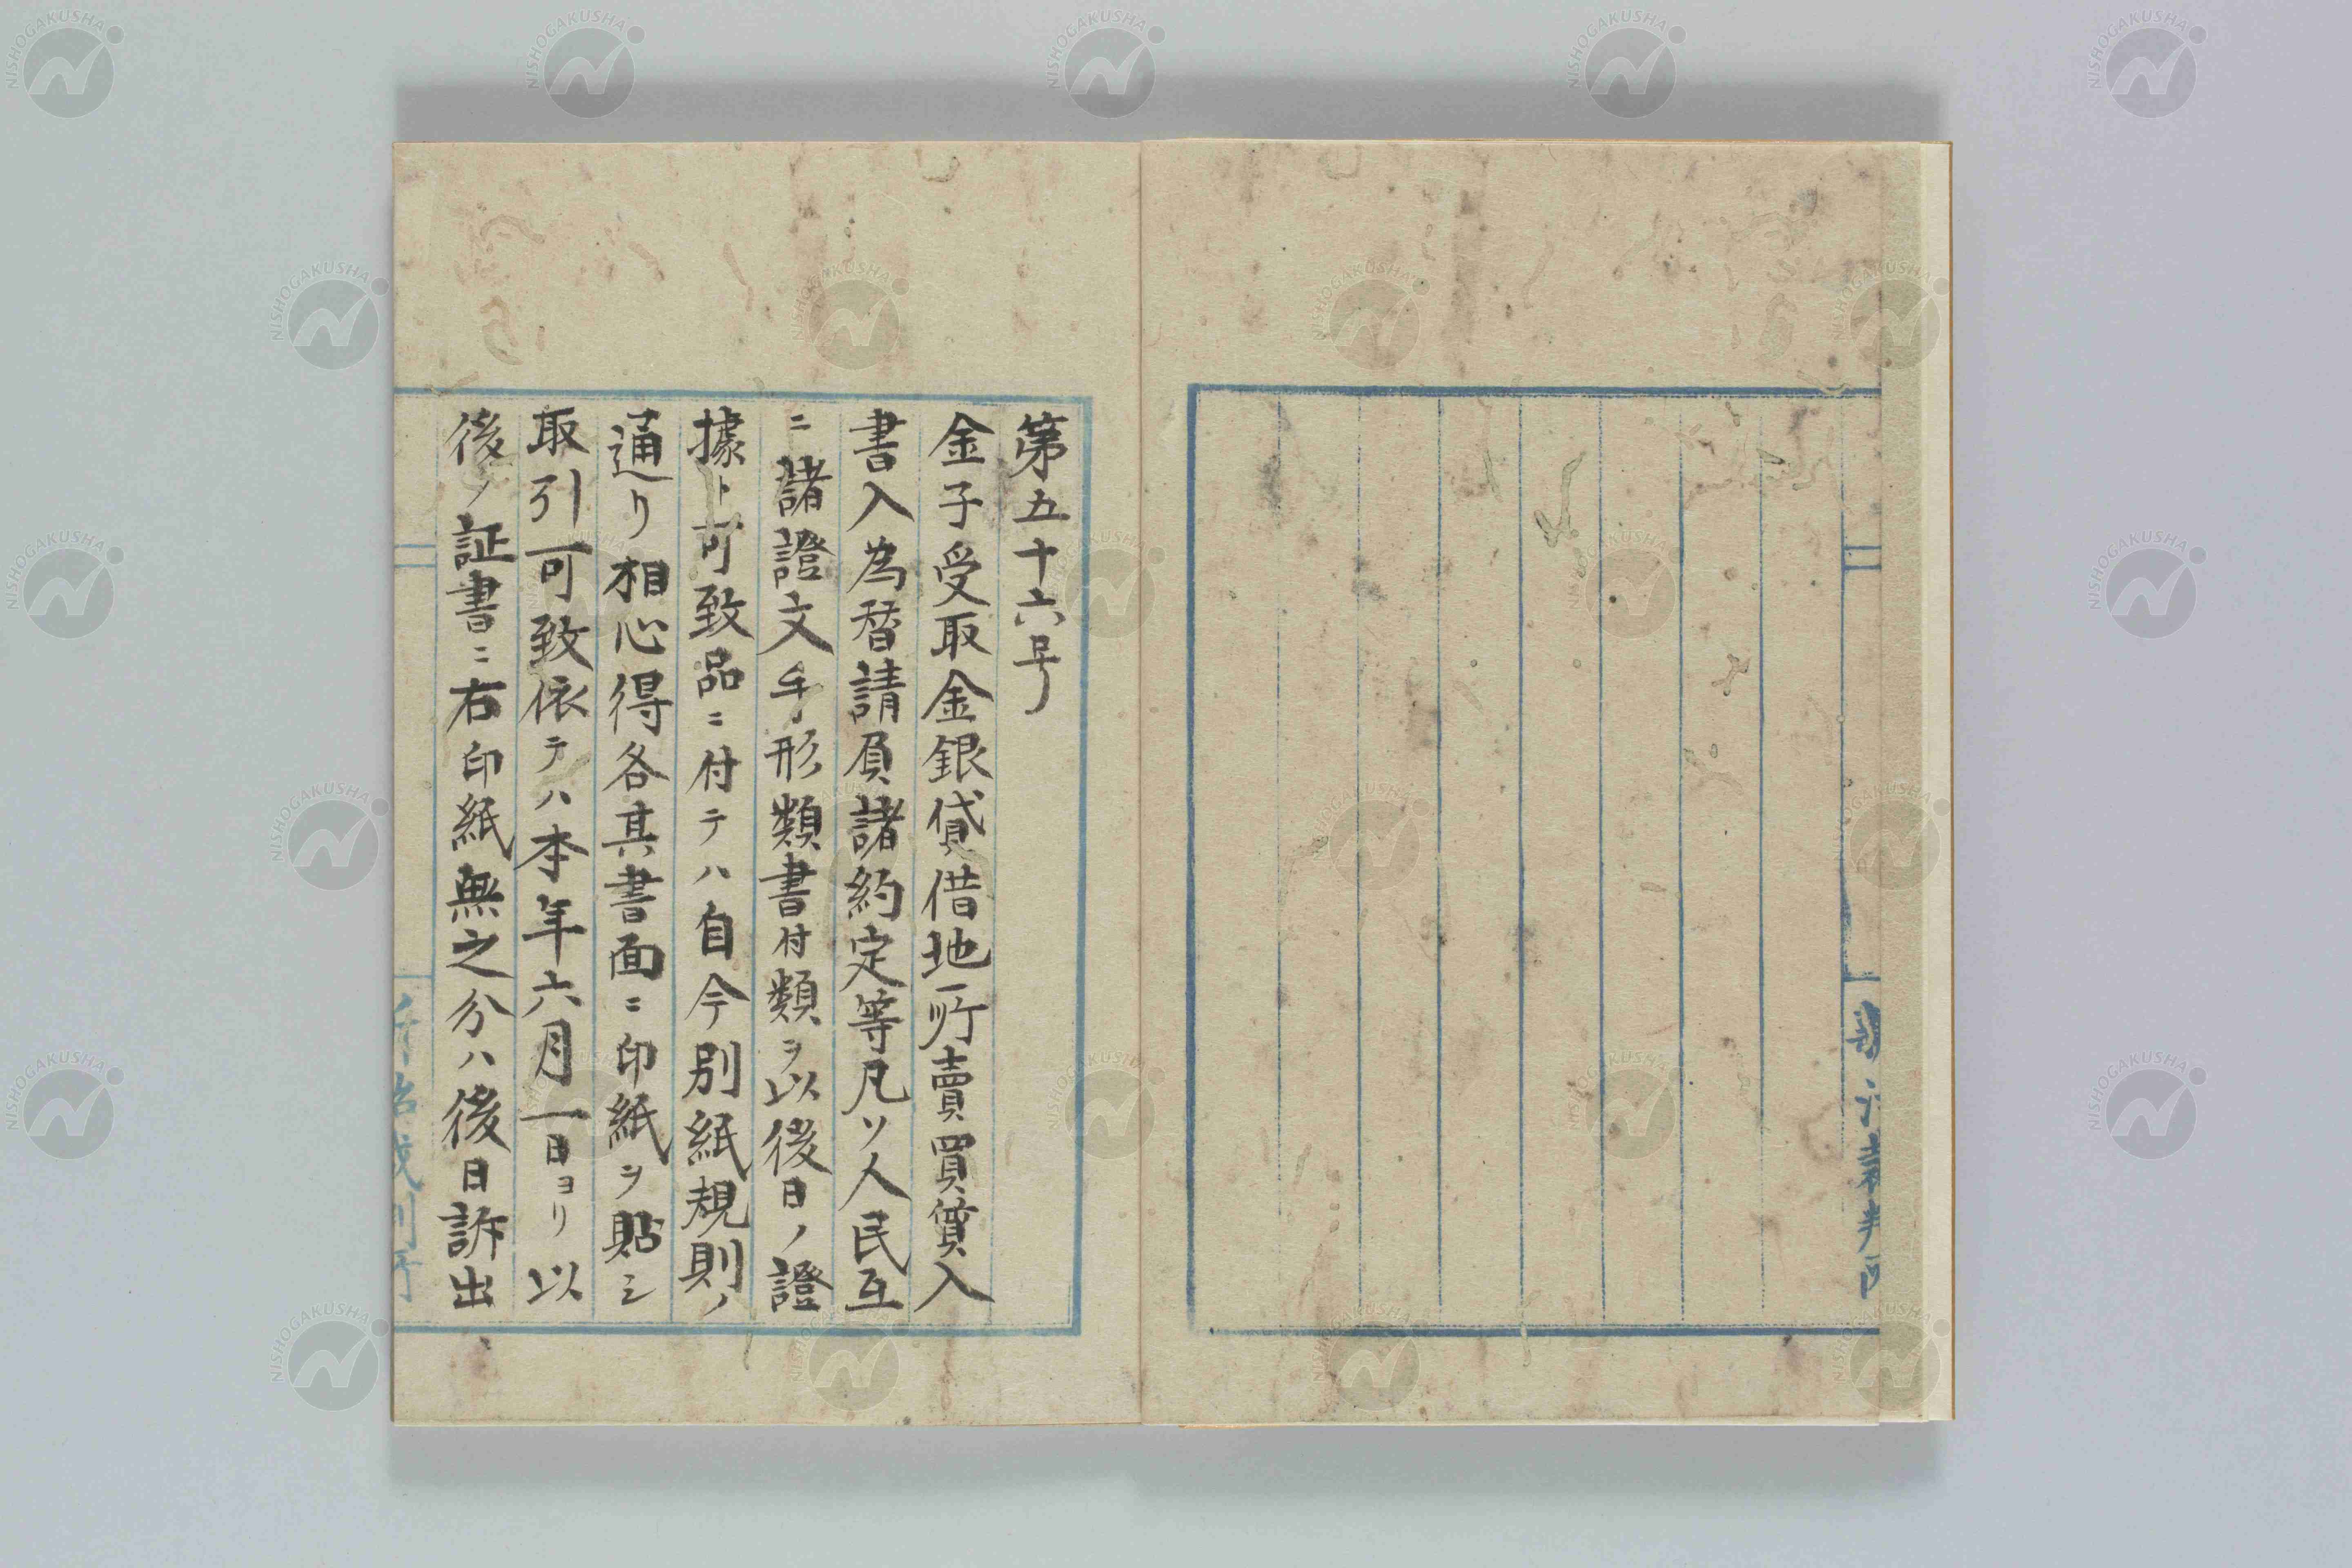 第五十六号
金子受取金銀貸借地所賣買質入
書入為替請負諸約定等凡ソ人民互
ニ諸證文手形類書付類ヲ以後日ノ證
據ト可致品ニ付テハ自今別紙規則ノ
通リ相心得各其書面ニ印紙ヲ貼シ
取引可致依テハ本年六月一日ヨリ以
後ノ証書ニ右印紙無之分ハ後日訴出
NISHOGAKUSHA